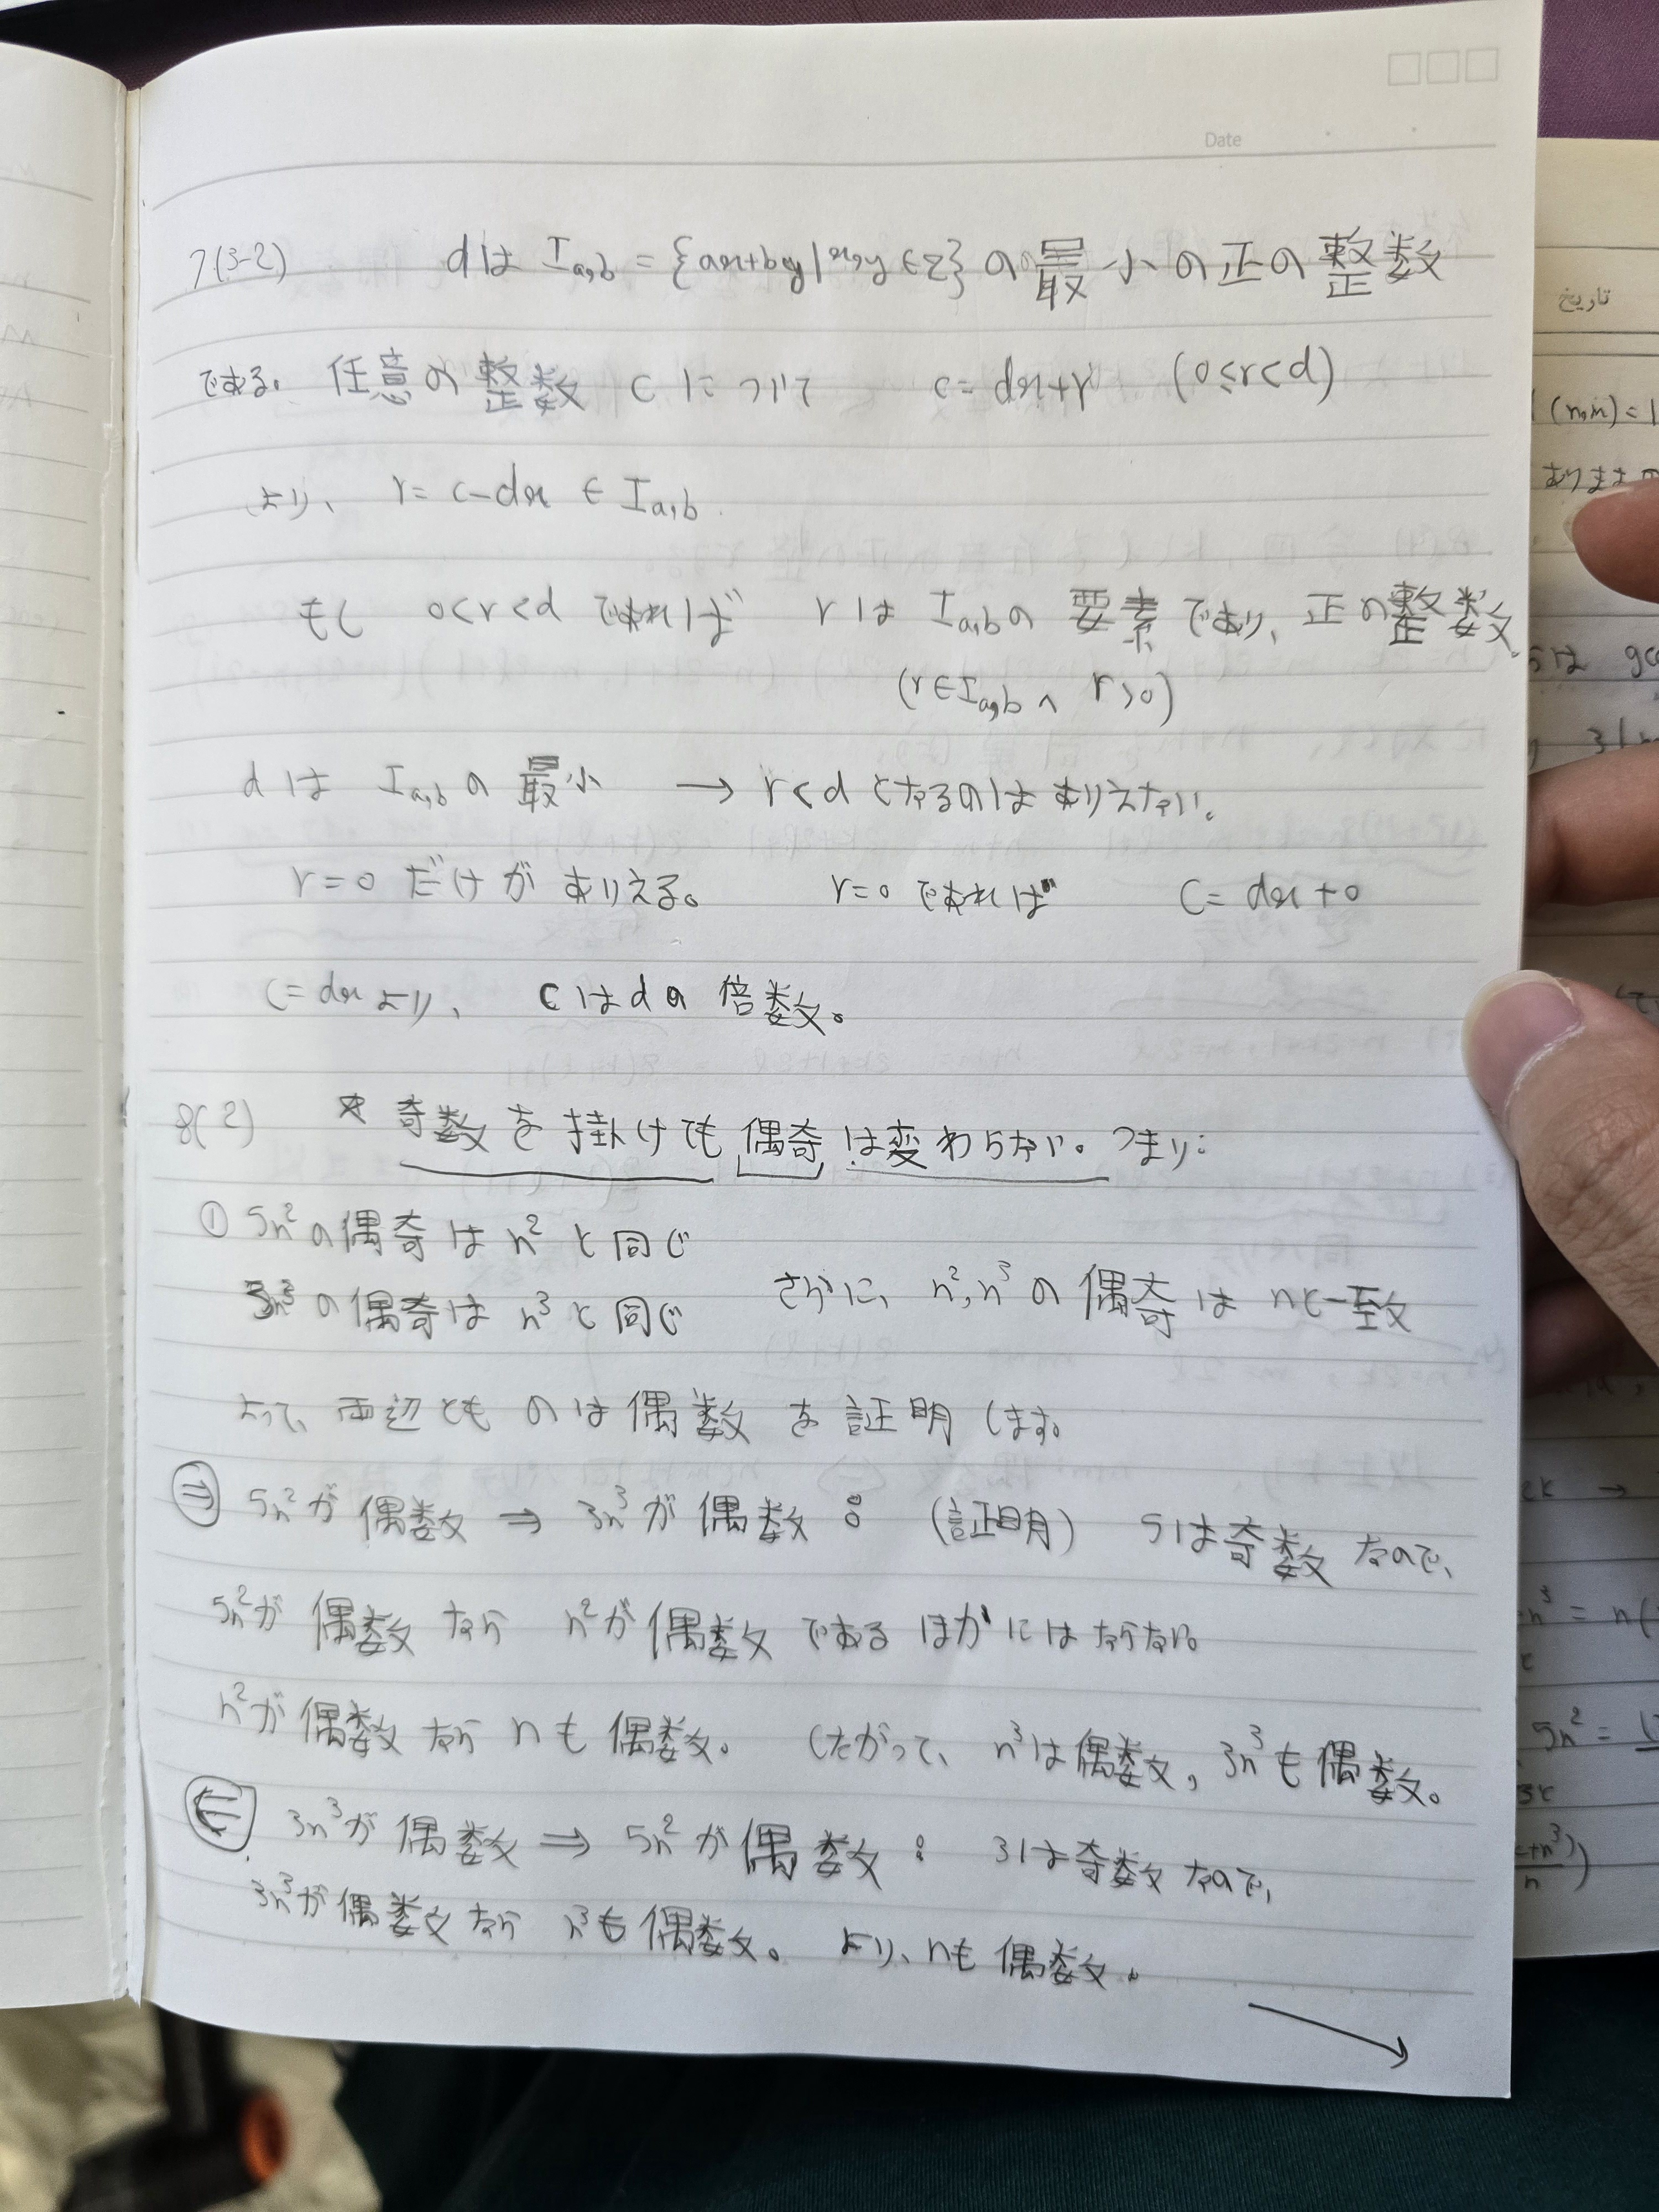 Date
7(3-2) dは Ia,b = {ax+by | x,y ∈ Z} の最小の正の整数
である。 任意の整数 c について c = dx+r (0≤r<d)
より、 r = c-dx ∈ Ia,b.
もし 0<r<d であれば r は Ia,bの 要素であり、正の整数。
(r∈Ia,b ∧ r>0)
dは Ia,bの 最小 → r<d となるのは ありえない。
r=0 だけが ありえる。 r=0 であれば C = dx+0
C=dxより、 cはdの 倍数。
8(2) ☆ 奇数を掛けても 偶奇は変わらない。つまり:
① 5n²の偶奇は n² と同じ
3n³の偶奇は n³ と同じ さらに、n²,n³の偶奇は nと一致
よって、両辺とも のは偶数 を証明します。
⇒ 5n²が偶数 ⇒ 3n³が偶数: (証明) 5は奇数なので、
5n²が偶数なら n²が偶数である ほかにはならない。
n²が偶数なら nも偶数。 したがって、n³は偶数, 3n³も偶数。
⇐ 3n³が偶数 ⇒ 5n²が偶数: 3は奇数なので、
3n³が偶数なら n³も偶数。 より、nも偶数。
→
تاريخ
(n,m)=1
あります
は gc
n³ = n(
5n² =